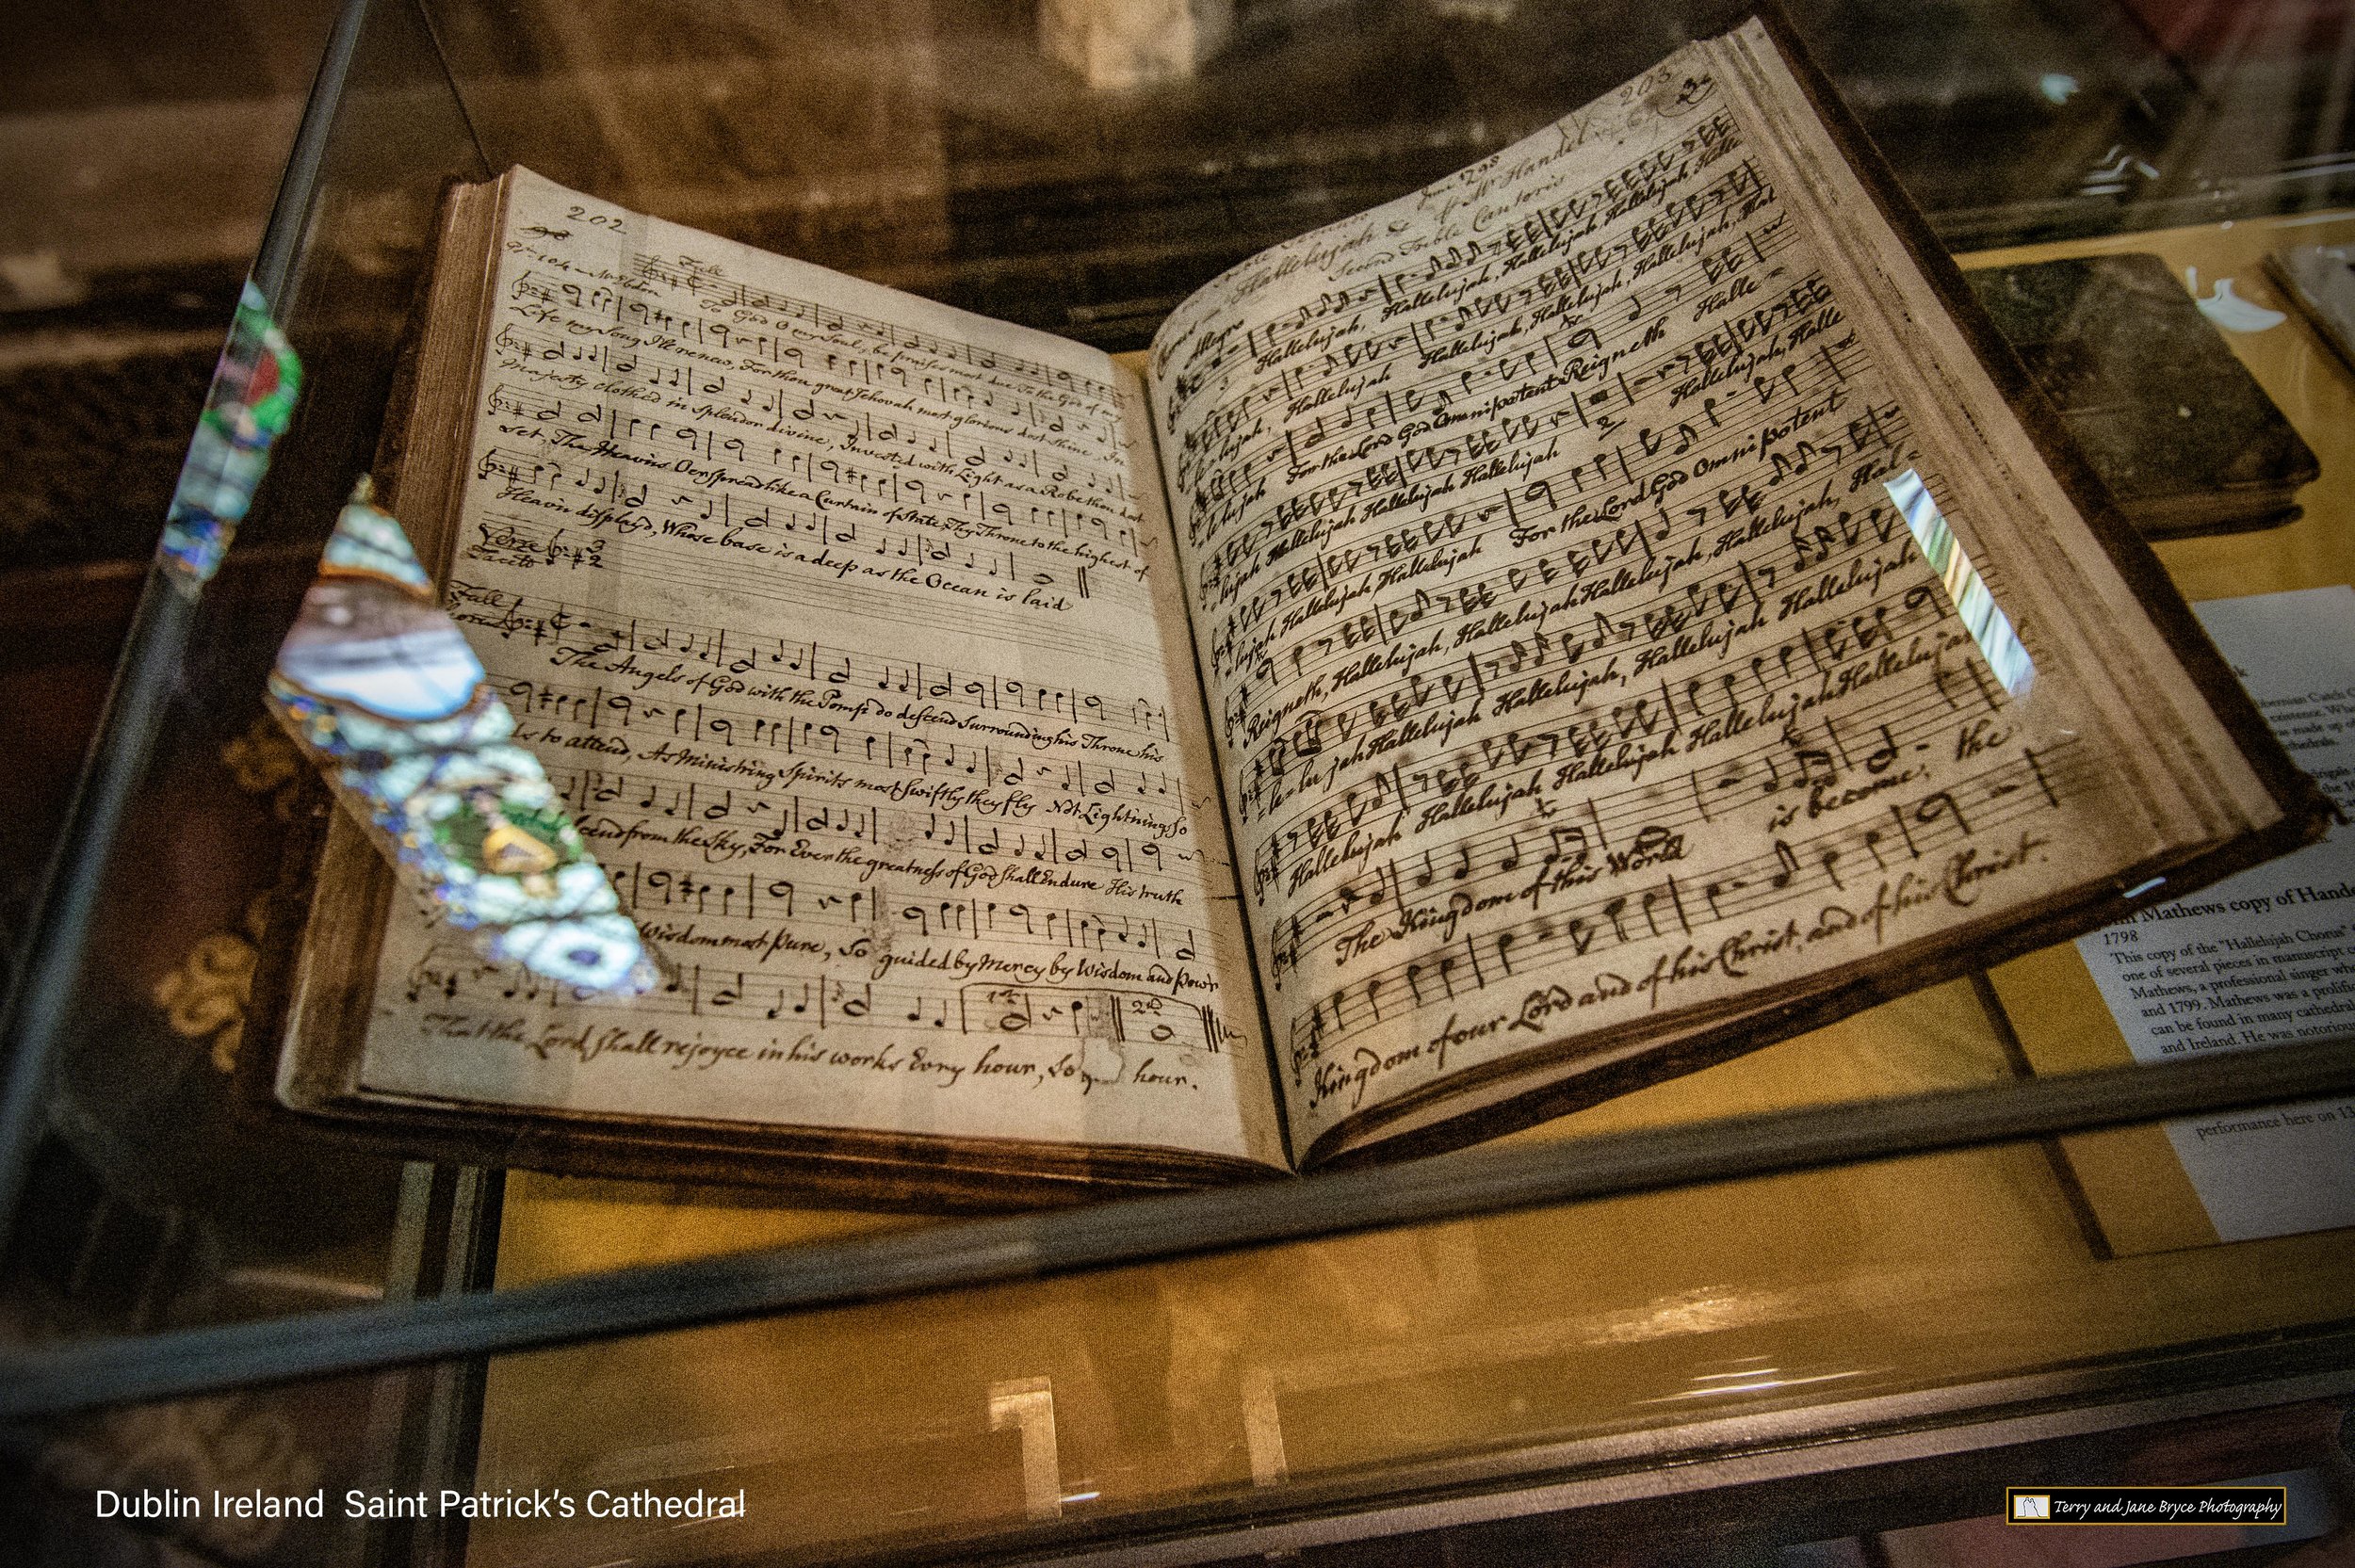 202
Full
To God O my Soul, be praises most due To the God of my
Life my Song Ile renew, For thou great Jehovah most glorious dost Shine, In
Majesty clothed in Splendor divine, Invested with Light as a Robe thou dost
set, The Heavins Oerspread like a Curtain of State, Thy Throne to the highest of
Heavin displayd, Whose base is a deep as the Ocean is laid
Verse
Tacito
Full
The Angels of God with the Pomp do descend Surrounding his Throne his
to attend, As Ministring Spirits most Swiftly they fly Not Lightning So
from the Sky, For Ever the greatness of God Shall Endure His truth
Wisdom most Pure, So guided by Mercy by Wisdom and Pow'r
That the Lord Shall rejoyce in his works Evry hour, So hour.
203
Hallelujah &c of Mr Handel
Second Treble Cantoris
Allegro
Hallelujah, Hallelujah, Hallelujah, Hallelujah, Halle
lujah, Hallelujah Hallelujah, Hallelujah, Hallelujah, Hal
lelujah For the Lord God Omnipotent Reigneth Halle
lujah Hallelujah Hallelujah Hallelujah Hallelujah, Halle
lujah Hallelujah, Hallelujah For the Lord God Omnipotent
Reigneth, Hallelujah, Hallelujah Hallelujah, Hallelujah, Hal=
le=lu jah Hallelujah Hallelujah, Hallelujah Hallelujah
Hallelujah Hallelujah Hallelujah Hallelujah Hallelujah
The Kingdom of this World is become, the
Kingdom of our Lord and of his Christ, and of his Christ.
Mathews copy of Hande
1798
This copy of the "Hallelijah Chorus"
one of several pieces in manuscript
Mathews, a professional singer who
and 1799. Mathews was a prolific
can be found in many cathedral
and Ireland. He was notorious
performance here on 13
Dublin Ireland Saint Patrick's Cathedral
Terry and Jane Bryce Photography